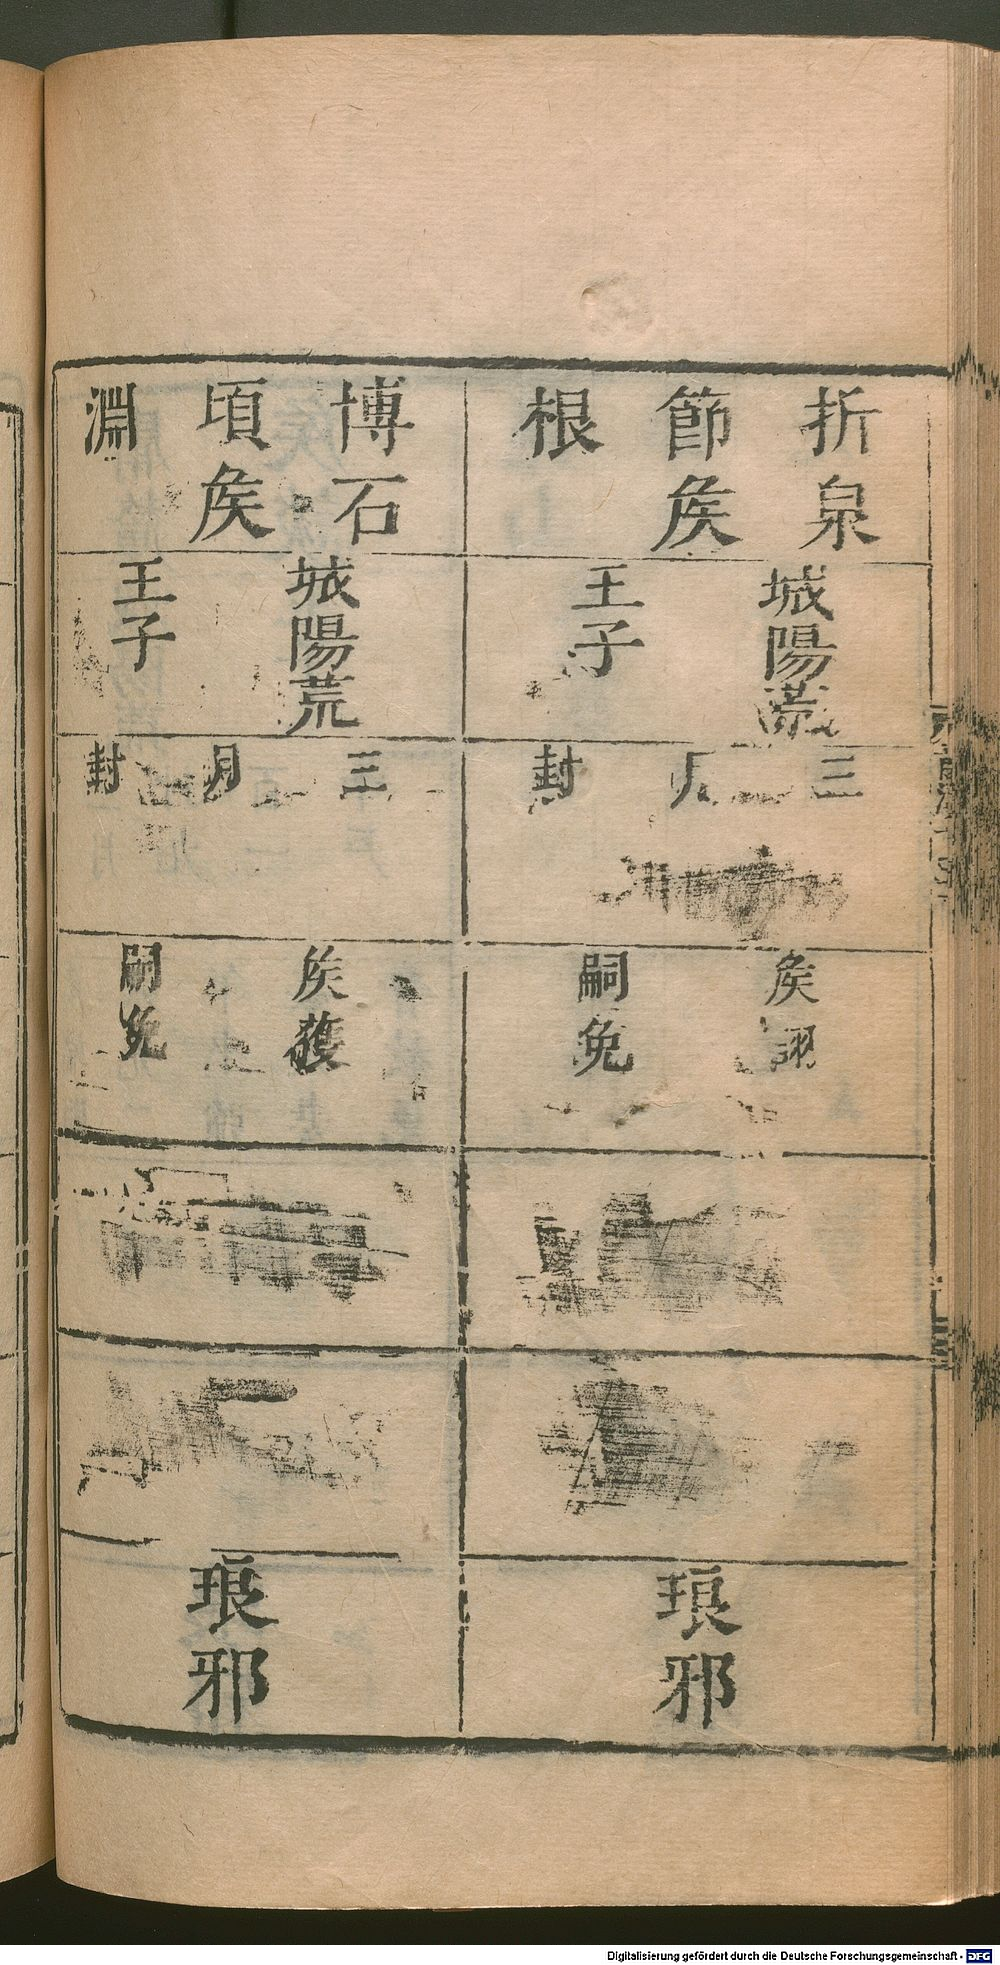 折泉
節矦
根
城陽荒
王子
三
月
封
矦詡
嗣免
琅邪
博石
頃矦
淵
城陽荒
王子
三
月
封
矦
嗣免
琅邪
Digitalisierung gefördert durch die Deutsche Forschungsgemeinschaft - DFG